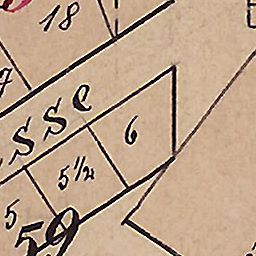 18
7
sse
6
5½
5
59